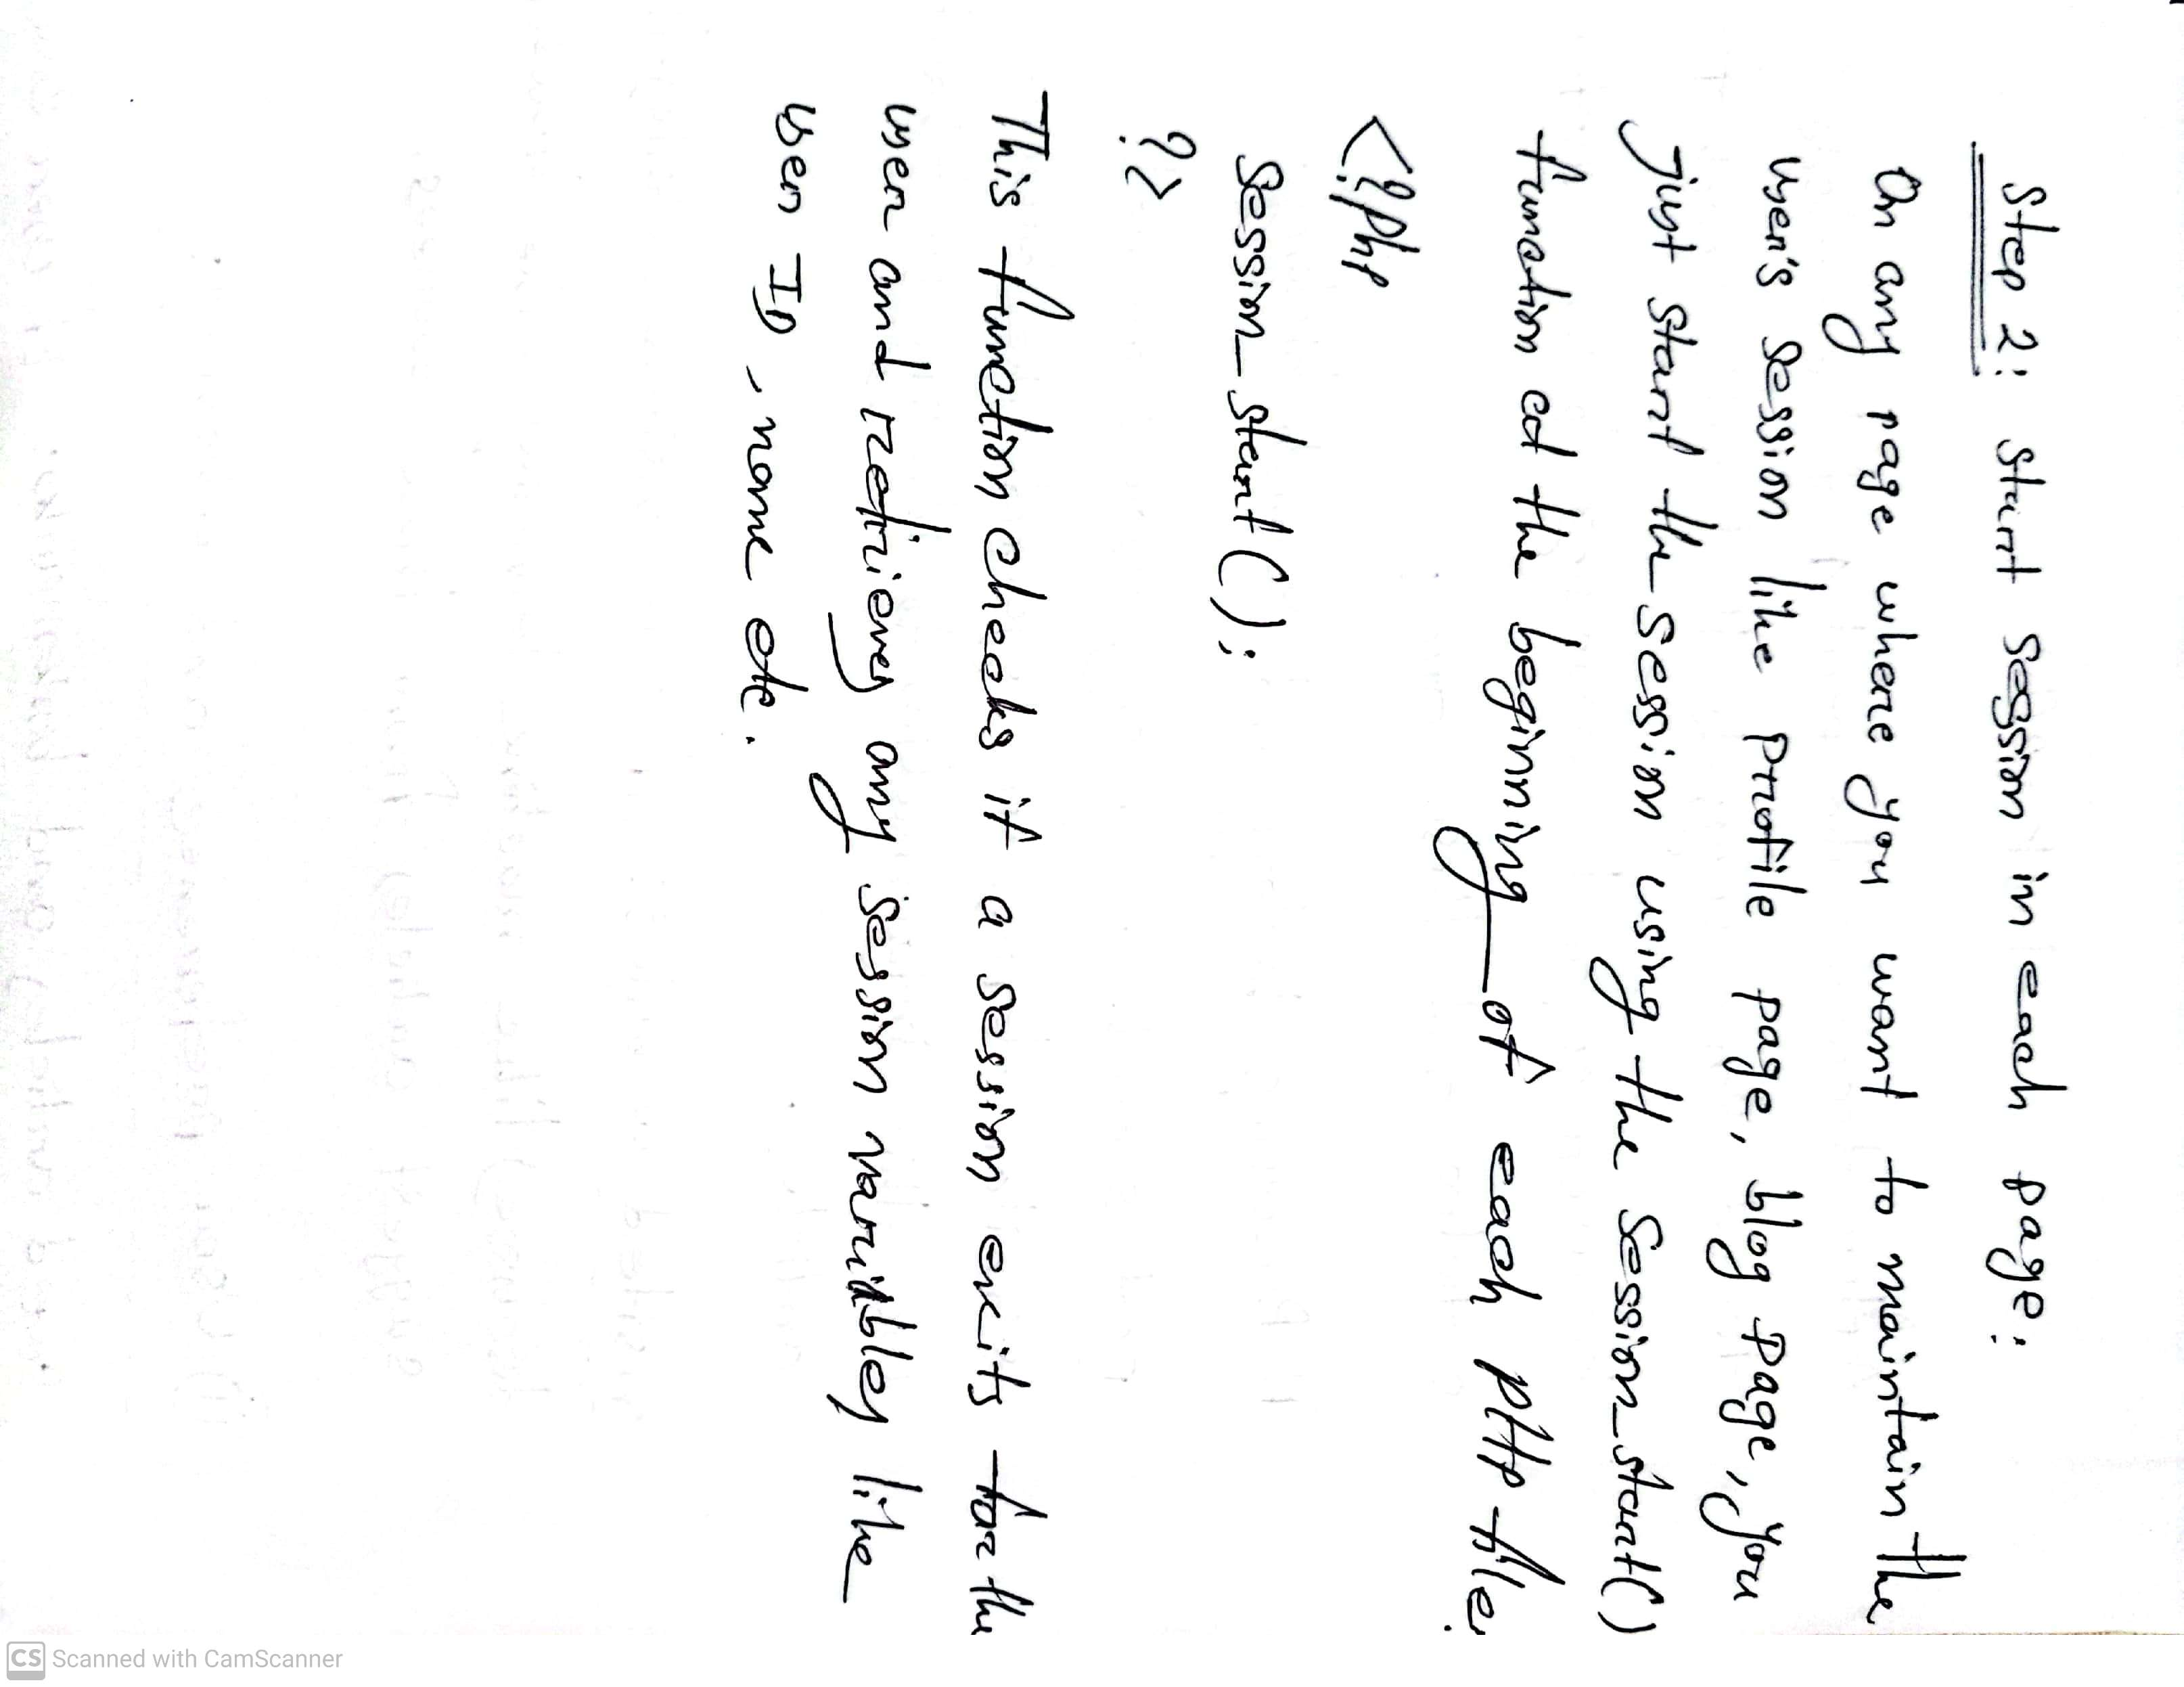 Step 2: Start Session in each page:
On any page where you want to maintain the
user's session like profile page, blog page, you
Just start the session using the session_start()
function at the beginning of each PHP file.
<?php
Session_start();
?>
This function checks if a session exits for the
user and retrieves any session varibles like
user ID, name etc.
CS Scanned with CamScanner